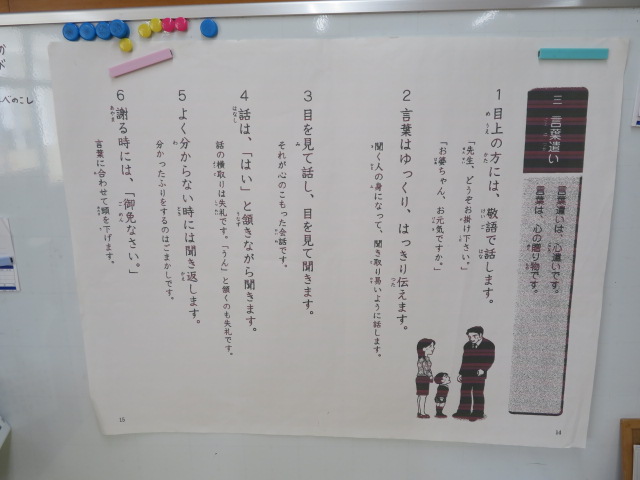 三 言葉遣い
言葉遣いは、心遣いです。
言葉は、心の贈り物です。
1 目上の方には、敬語で話します。
「先生、どうぞお掛け下さい。」
「お婆ちゃん、お元気ですか。」
2 言葉はゆっくり、はっきり伝えます。
聞く人の身になって、聞き取り易いように話します。
3 目を見て話し、目を見て聞きます。
それが心のこもった会話です。
4 話は、「はい」と頷きながら聞きます。
話の横取りは失礼です。「うん」と頷くのも失礼です。
5 よく分からない時には聞き返します。
分かったふりをするのはごまかしです。
6 謝る時には、「御免なさい。」
言葉に合わせて頭を下げます。
14
15